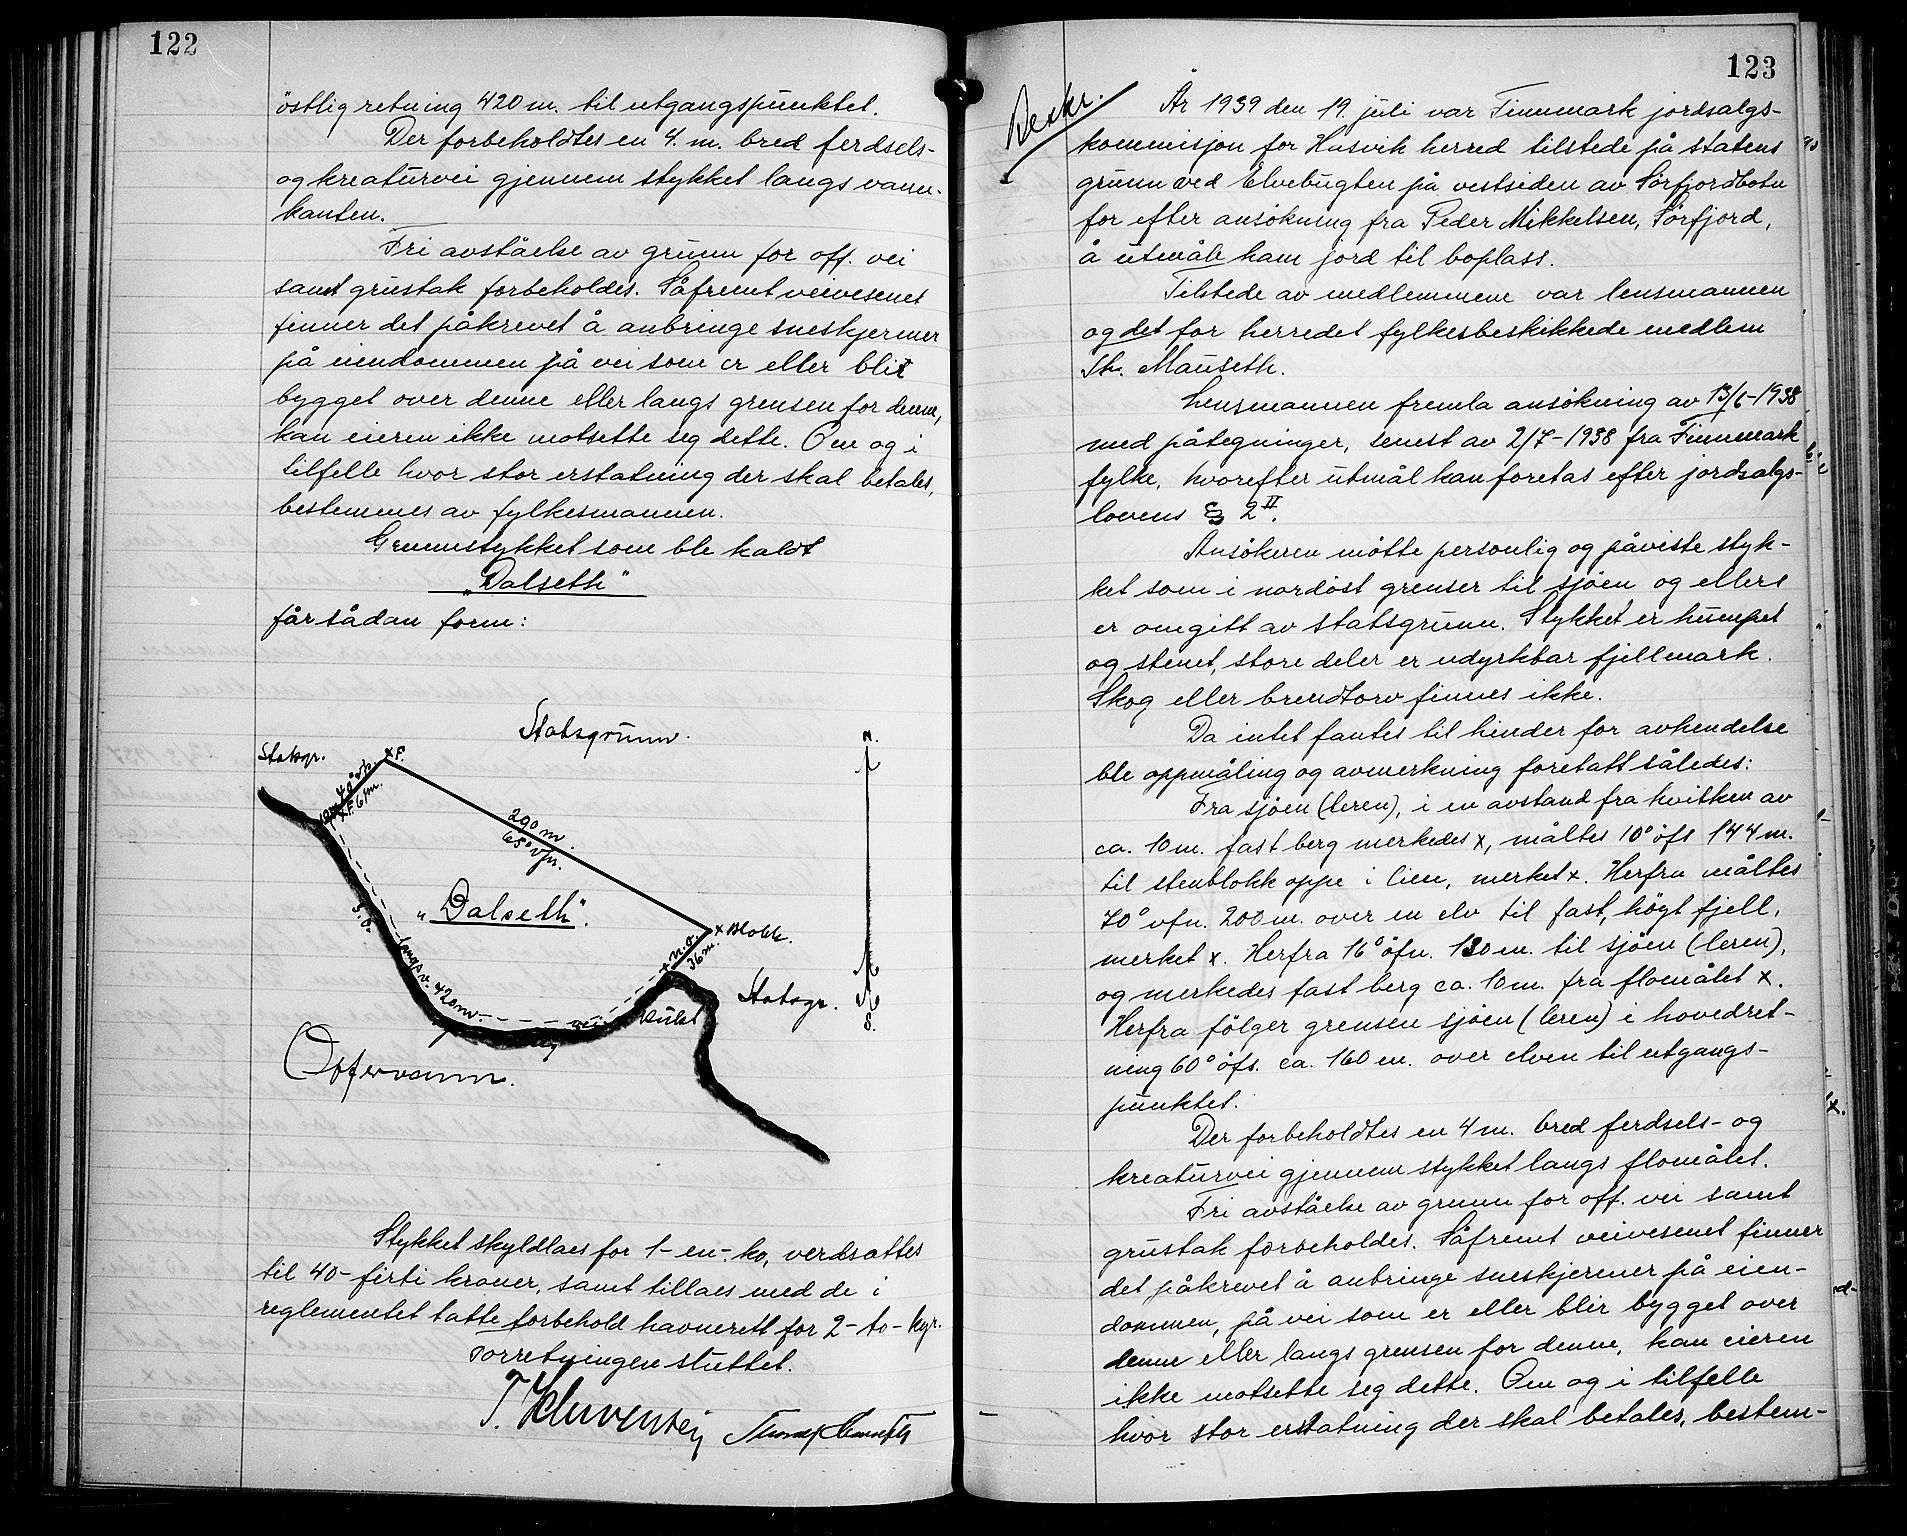 122
östlig retning 420 m. til utgangspunktet.
Der forbeholdtes en 4. m. bred ferdsels-
og kreaturvei gjennem stykket langs vann-
kanten.
Fri avståelse av grunn for off. vei
samt grustak forbeholdes. Såfremt veivesenet
finner det påkrevet å anbringe sneskjermer
på eiendommen på vei som er eller blir
bygget over denne eller langs grensen for denne,
kan eieren ikke motsette seg dette. Om og i
tilfelle hvor stor erstatning der skal betales,
bestemmes av fylkesmannen.
Grunnstykket som ble kaldt
"Dalseth"
får sådan form:
Statsgrunn.
Statsgr.
x F.
N.
290 m.
65° vfn.
"Dalseth".
x Blokk.
n. ö.
36 m.
S. ö.
langs v. 420 m.
vei
Statsgr.
S.
Offervann.
Stykket skyldlaes for 1-en-ko, verdsattes
til 40-firti kroner, samt tillaes med de i
reglementet tatte forbehold havnerett for 2-to-kyr.
Forretningen sluttet.
123
Beskr.
År 1939 den 19. juli var Finnmark jordsalgs-
kommisjon for Hasvik herred tilstede på statens
grunn ved Elvebugten på vestsiden av Sörfjordbotn
for efter ansökning fra Peder Mikkelsen, Sörfjord,
å utmåle ham jord til boplass.
Tilstede av medlemmene var lensmannen
og det for herredet fylkesbeskikkede medlem
Th. Mauseth.
Lensmannen fremla ansökning av 13/6-1938
med påtegninger, senest av 2/7-1938 fra Finnmark
fylke, hvorefter utmål kan foretas efter jordsalgs-
lovens § 2 II.
Ansökeren mötte personlig og påviste styk-
ket som i nordöst grenser til sjöen og ellers
er omgitt av statsgrunn. Stykket er humpet
og stenet, store deler er udyrkbar fjellmark.
Skog eller brendtorv finnes ikke.
Da intet fantes til hinder for avhendelse
ble oppmåling og avmerkning foretatt således:
Fra sjöen (leren), i en avstand fra hvilken av
ca. 10 m. fast berg merkedes x, måltes 10° öfs 144 m.
til stenblokk oppe i lien, merket x. Herfra måltes
70° vfn. 200 m. over en elv til fast, högt fjell,
merket x. Herfra 16° öfn. 130 m. til sjöen (leren),
og merkedes fast berg ca. 10 m. fra flomålet x.
Herfra fölger grensen sjöen (leren) i hovedret-
ning 60° öfs. ca. 160 m. over elven til utgangs-
punktet.
Der forbeholdtes en 4 m. bred ferdsels- og
kreaturvei gjennem stykket langs flomålet.
Fri avståelse av grunn for off. vei samt
grustak forbeholdes. Såfremt veivesenet finner
det påkrevet å anbringe sneskjermer på eien-
dommen, på vei som er eller blir bygget over
denne eller langs grensen for denne, kan eieren
ikke motsette seg dette. Om og i tilfelle
hvor stor erstatning der skal betales, bestem-